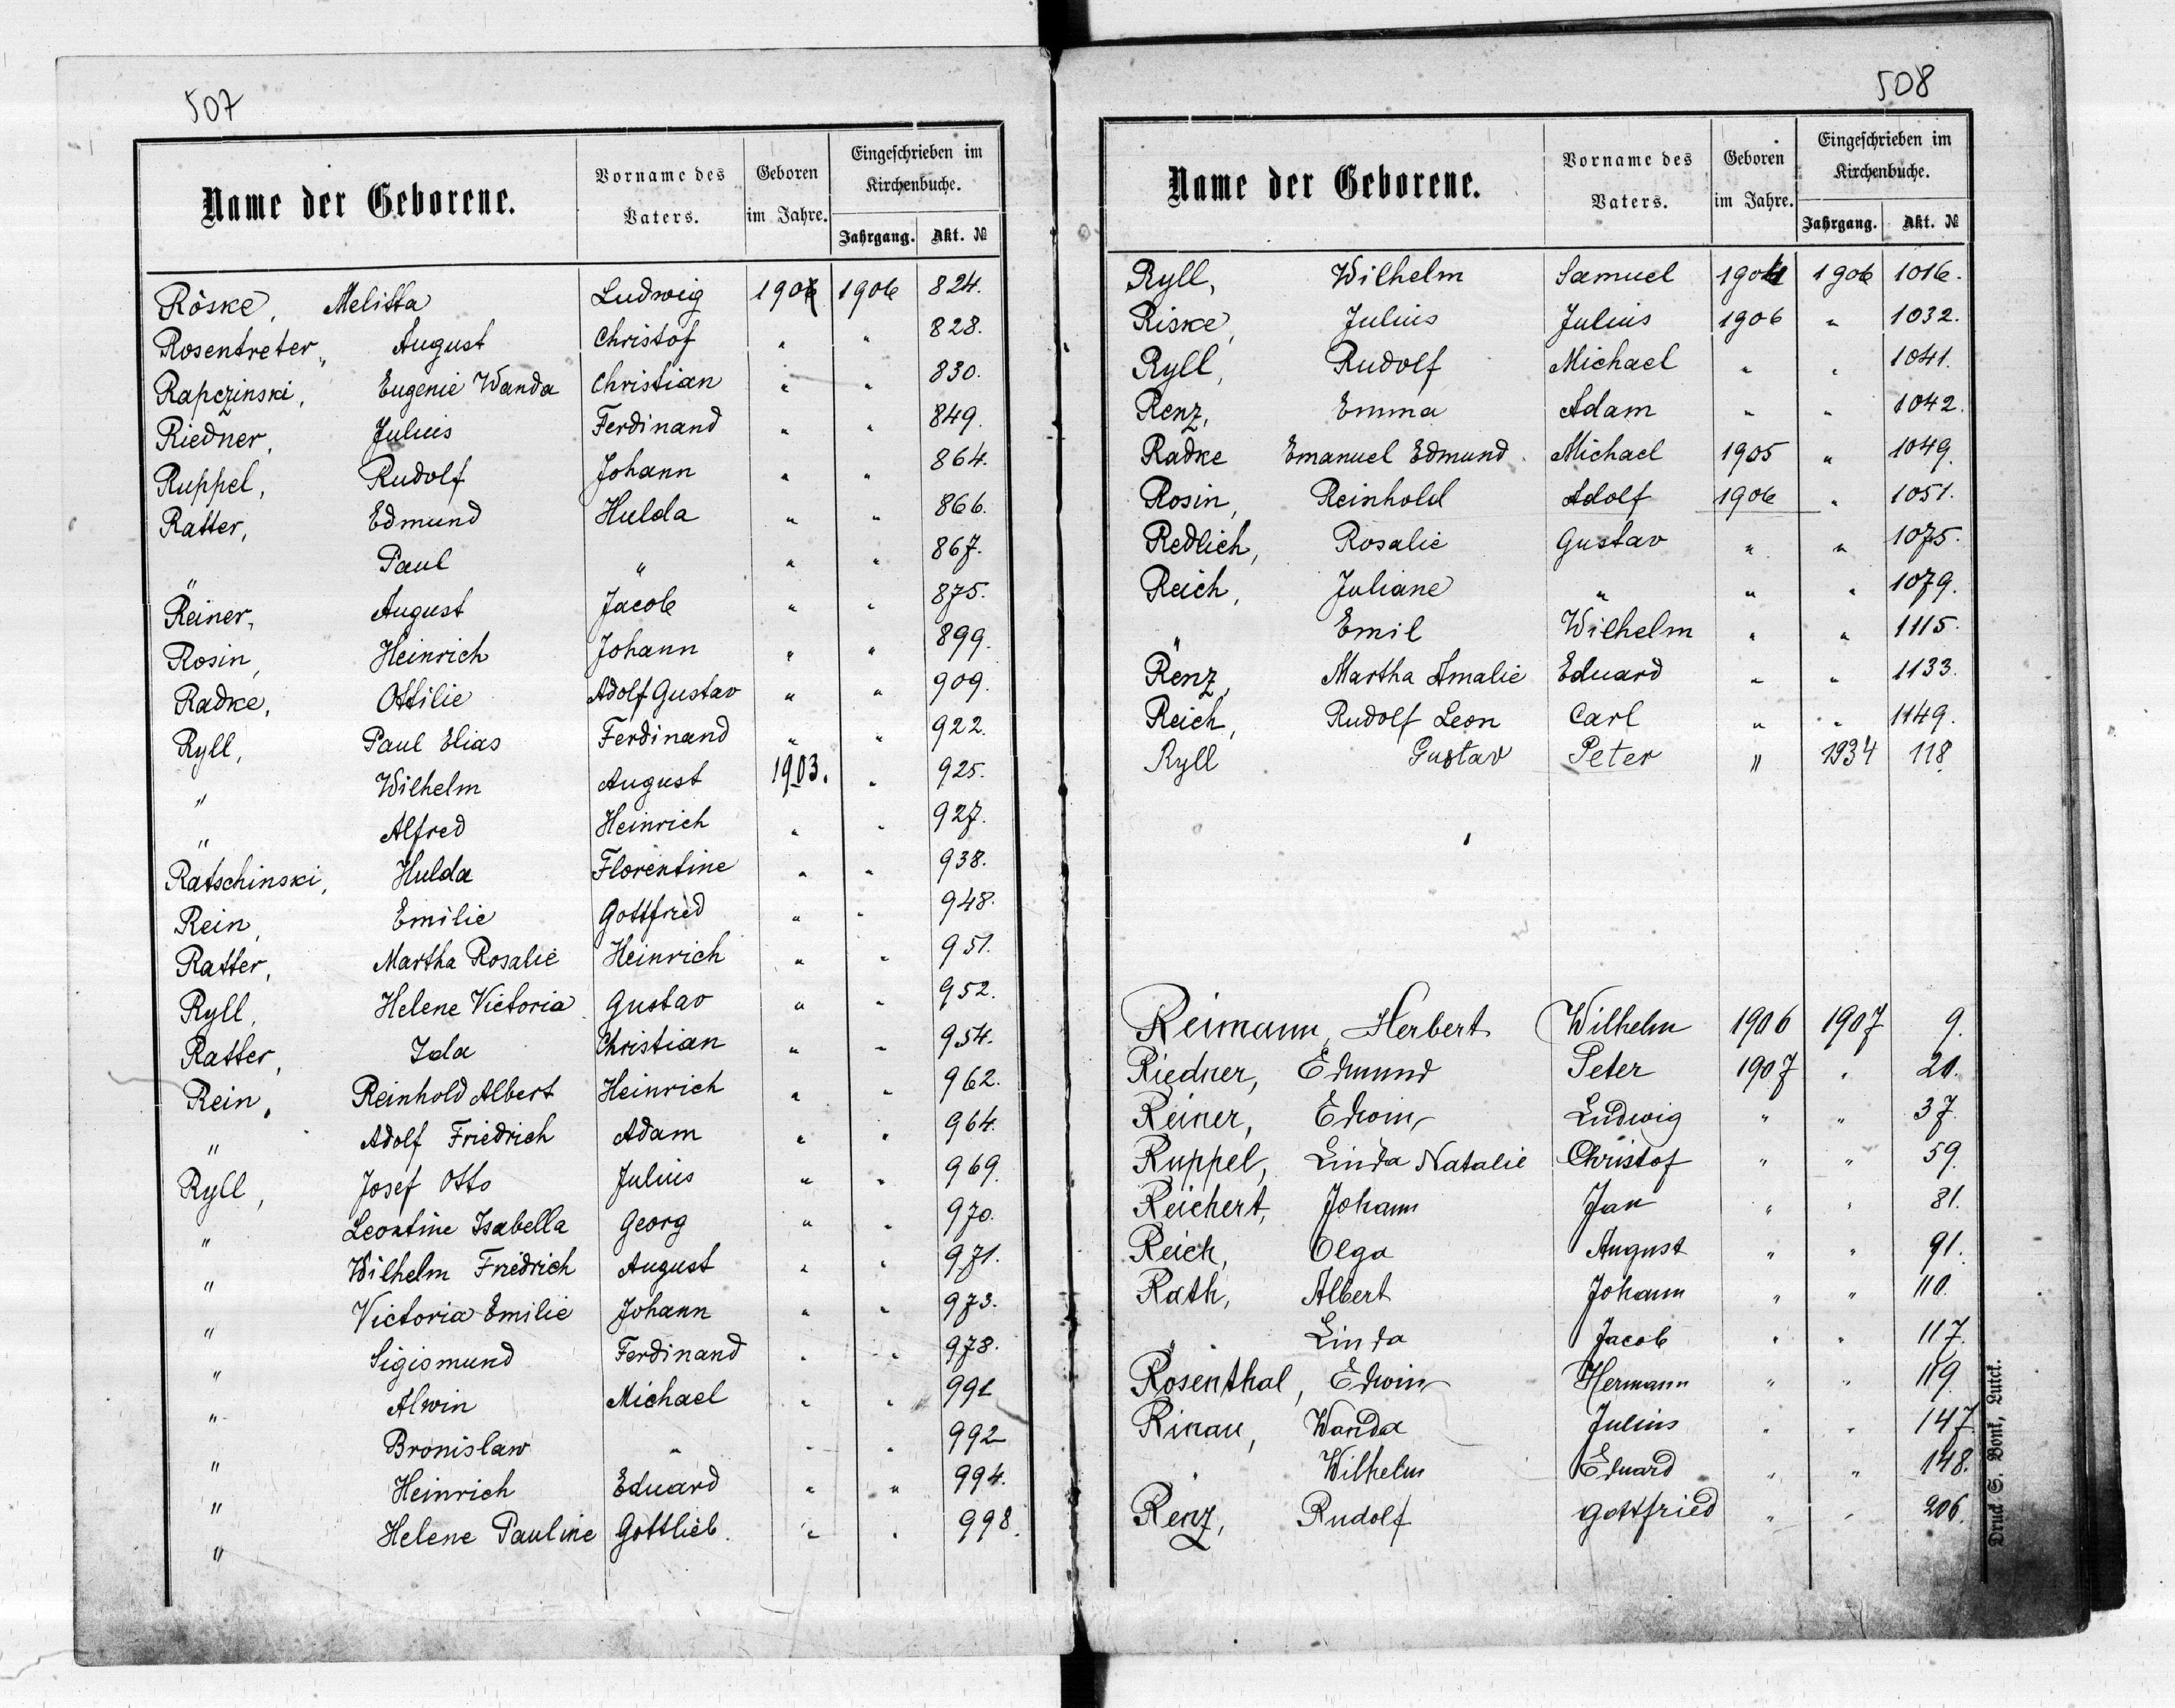 507
Name der Geborene. Vorname des Vaters. Geboren im Jahre. Eingeschrieben im Kirchenbuche. Jahrgang. Akt. №
Röske, Melitta Ludwig 1906 824.
Rosentreter, August Christof " " 828.
Rapczinski, Eugenie Wanda Christian " " 830.
Riedner, Julius Ferdinand " " 849.
Ruppel, Rudolf Johann " " 864.
Ratter, Edmund Hulda " " 866.
" Paul " " " 867.
Reiner, August Jacob " " 875.
Rosin, Heinrich Johann " " 899.
Radke, Ottilie Adolf Gustav " " 909.
Ryll, Paul Elias Ferdinand " " 922.
" Wilhelm August 1903. " 925.
" Alfred Heinrich " " 927.
Ratschinski, Hulda Florentine " " 938.
Rein, Emilie Gottfried " " 948.
Ratter, Martha Rosalie Heinrich " " 951.
Ryll, Helene Victoria Gustav " " 952.
Ratter, Ida Christian " " 954.
Rein, Reinhold Albert Heinrich " " 962.
" Adolf Friedrich Adam " " 964.
Ryll, Josef Otto Julius " " 969.
" Leontine Isabella Georg " " 970.
" Wilhelm Friedrich August " " 971.
" Victoria Emilie Johann " " 973.
" Sigismund Ferdinand " " 978.
" Alwin Michael " " 991
" Bronislaw " " " 992
" Heinrich Eduard " " 994.
" Helene Pauline Gottlieb. " " 998.
508
Name der Geborene. Vorname des Vaters. Geboren im Jahre. Eingeschrieben im Kirchenbuche. Jahrgang. Akt. №
Ryll, Wilhelm Samuel 1904 1906 1016.
Riske, Julius Julius 1906 " 1032.
Ryll, Rudolf Michael " " 1041.
Renz, Emma Adam " " 1042.
Radke Emanuel Edmund Michael 1905 " 1049.
Rosin, Reinhold Adolf 1906 " 1051.
Redlich, Rosalie Gustav " " 1075.
Reich, Juliane " " " 1079.
" Emil Wilhelm " " 1115.
Renz, Martha Amalie Eduard " " 1133.
Reich, Rudolf Leon Carl " " 1149.
Ryll Gustav Peter " 1934 118
Reimann, Herbert Wilhelm 1906 1907 9.
Riedner, Edmund Peter 1907 "
Reiner, Edwin Ludwig " " 37.
Ruppel, Linda Natalie Christof " " 59.
Reichert, Johann Jan " " 81.
Reich, Olga August " " 91.
Rath, Albert Johann " " 110.
" Linda Jacob " " 117.
Rosenthal, Edwin Hermann " " 119.
Rinau, Wanda Julius " " 147.
" Wilhelm Eduard " " 148.
Renz, Rudolf Gottfried " " 206.
Druck S. Bonk, Luck.